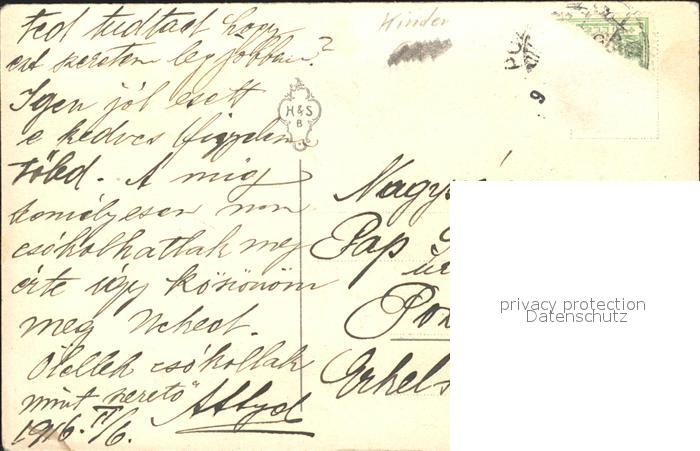 Ted tudtad hogy
ezt szeretem legjobban?
Igen jól esett
e kedves figyelem
tőled. A míg
személyesen nem
csókolhatlak meg
érte úgy köszönöm
meg Neked.
Ölellek csókollak
mint szerető
1916. II/6.
Kinder
H&S
B
9
Nagys
Pap
úr
Erkel
privacy protection
Datenschutz